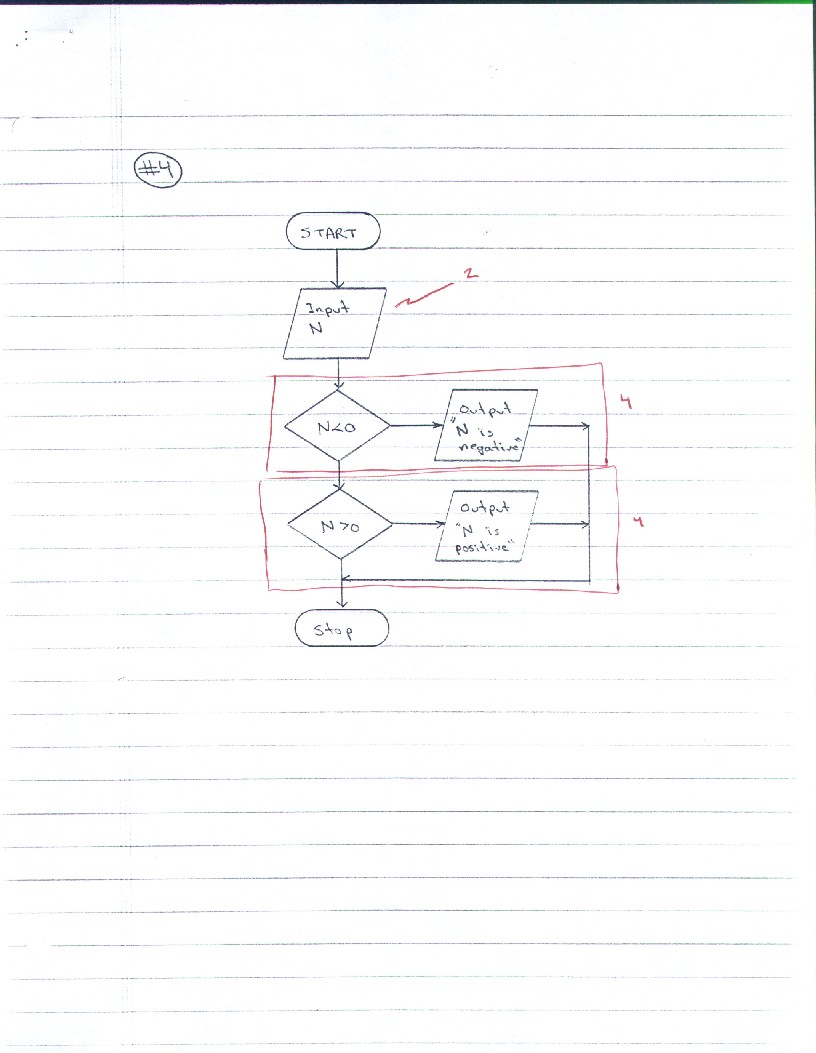 #4
START
2
Input
N
N<0
Output
"N is
negative"
4
N>0
Output
"N is
positive"
4
Stop